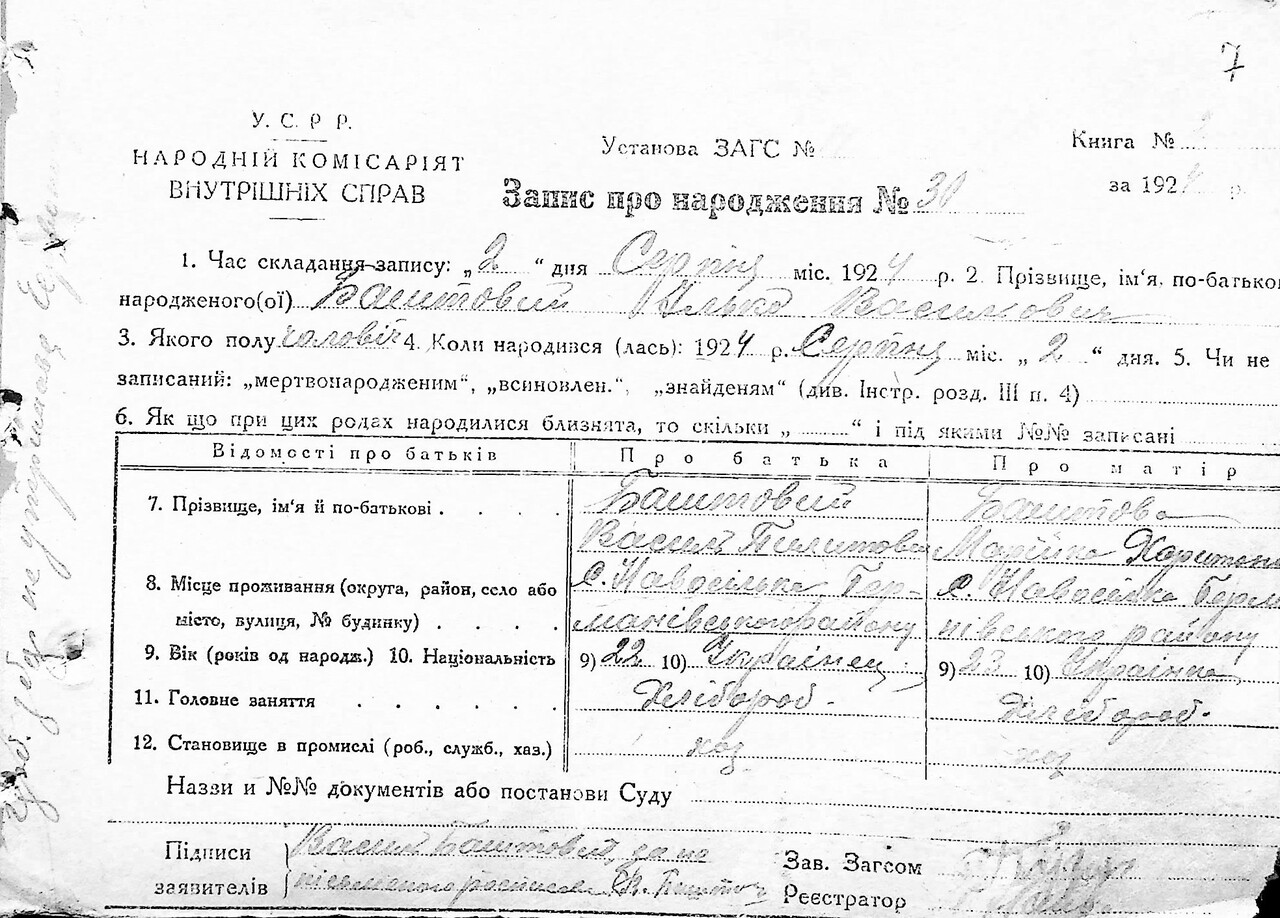 7
У. С. Р Р.
НАРОДНІЙ КОМІСАРІЯТ
ВНУТРІШНІХ СПРАВ
Установа ЗАГС №
Книга №
за 1924 р.
Запис про народження № 30
1. Час складання запису: „ 2 “ дня Серпня міс. 1924 р. 2. Прізвище, ім'я, по-батькові
народженого(ої) Баштовий Ілько Василович
3. Якого полу чоловіч 4. Коли народився (лась): 1924 р. Серпня міс. „ 2 “ дня. 5. Чи не
записаний: „мертвонародженим“, „всиновлен.“, „знайденям“ (див. Інстр. розд. III п. 4)
6. Як що при цих родах народилися близнята, то скільки „ “ і під якими №№ записані
Відомості про батьків Про батька Про матір
7. Прізвище, ім'я й по-батькові . . . . Баштовий Баштова
Василь Пилипович Марійка Харитон
8. Місце проживання (округа, район, село або с. Новосілька Гер- с. Новосілка Герма
місто, вулиця, № будинку) . . . . манівського району нівсько району
9. Вік (років од народж.) 10. Національність 9) 22 10) Українец 9) 23 10) Українка
11. Головне заняття . . . . . Хлібороб. Хлібороб.
12. Становище в промислі (роб., служб., хаз.) хоз хоз
Назви и №№ документів або постанови Суду
Підписи Василь Баштовий, за не
заявителів письменого росписався Баштов
Зав. Загсом
Реєстратор